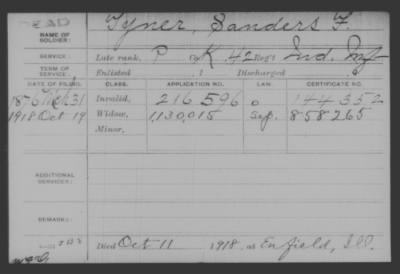 DEAD
NAME OF SOLDIER: Tyner, Sanders F.
SERVICE: Late rank, P Co. K, 42 Reg't Ind. Inf
TERM OF SERVICE: Enlisted , 1 Discharged
DATE OF FILING. CLASS. APPLICATION NO. LAW. CERTIFICATE NO.
1876 Mch 31 Invalid, 216.596 144.352
1918 Oct 19 Widow, 1,130,015 Sep. 858265
Minor,
ADDITIONAL SERVICES:
REMARKS:
Died Oct 11 1918, at Enfield, Ill.